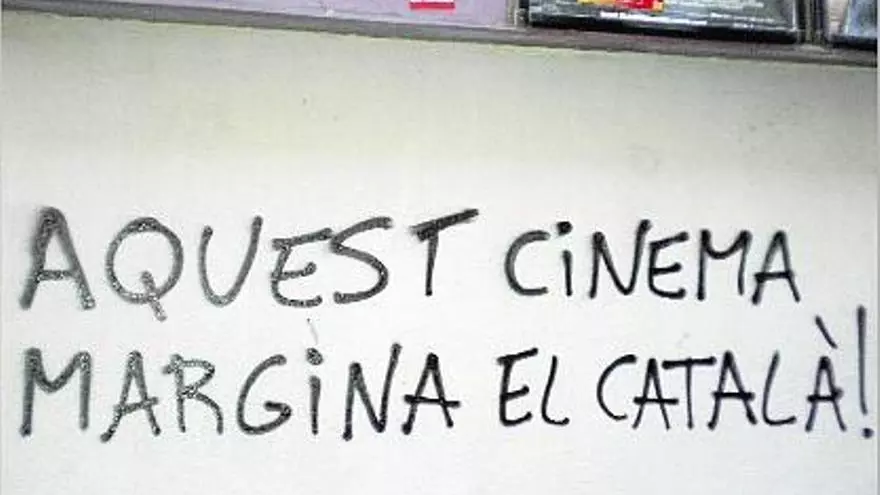 AQUEST CiNEMA
MARGiNA EL CATALÀ!